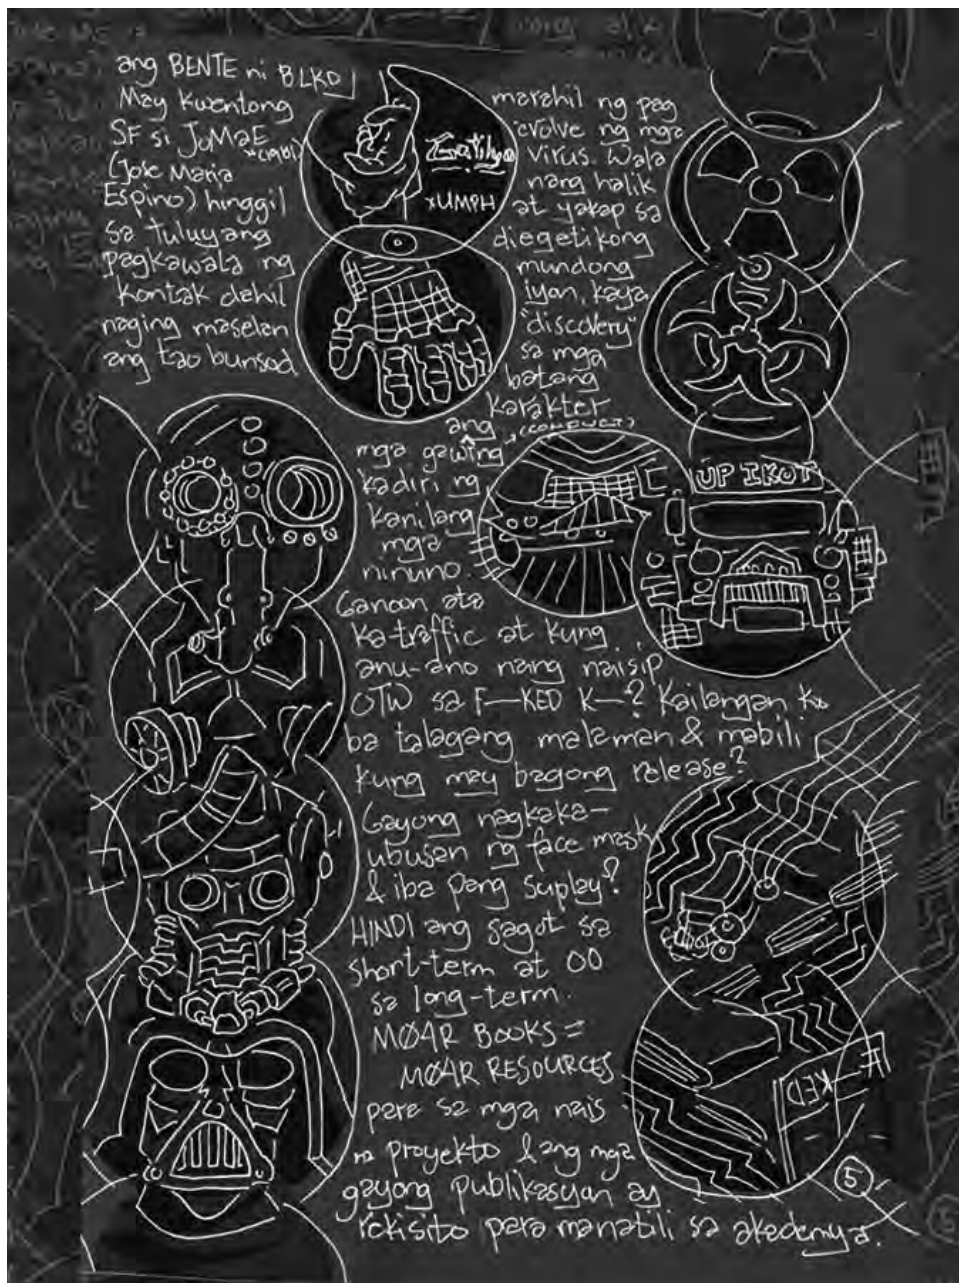 ang BENTE ni BLKD
May kwentong
SF si JoMaE
(Jose Maria
Espino) hinggil
sa tuluyang
pagkawala ng
kontak dahil
naging maselan
ang tao bunsod
xUMPH
marahil ng pag
evolve ng mga
virus. Wala
nang halik
at yakap sa
diegetikong
mundong
iyan, kaya
"discovery"
sa mga
batang
karakter
ang
mga gawing
kadiri ng
kanilang
mga
ninuno.
UP IKOT
Ganoon ata
ka-traffic at kung
anu-ano nang naisip
OTW sa F—KED K—? Kailangan ko
ba talagang malaman & mabili
kung may bagong release?
Gayong nagkaka-
ubusan ng face mask
& iba pang suplay?
HINDI ang sagot sa
short-term at OO
sa long-term.
MØAR BOOKS =
MØAR RESOURCES
para sa mga nais
na proyekto & ang mga
gayong publikasyon ay
rekisito para manatili sa akademya.
F—KED
5